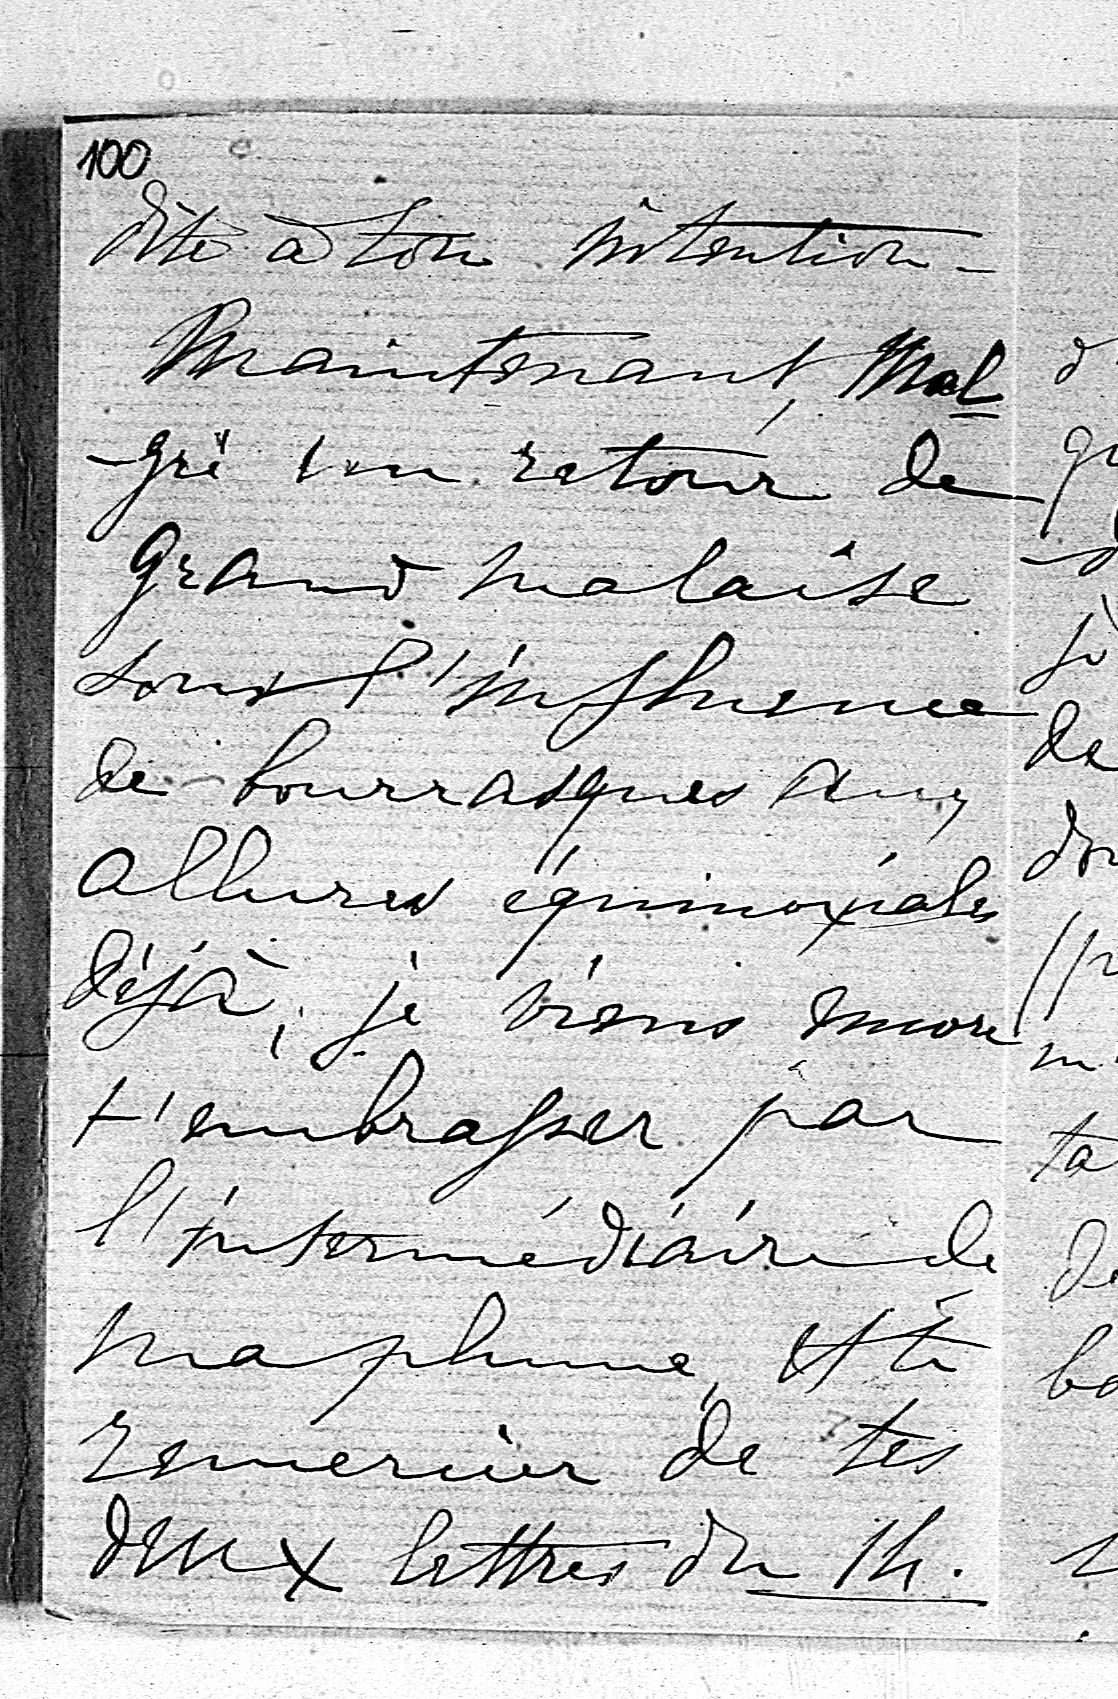 100
dite à ton intention -
Maintenant, Mal
gré un retour de
grand malaise
sous l'influence
de bourrasques aux
allures équinoxiales
déjà, je viens encore
t'embrasser par
l'intermédiaire de
ma plume, et te
remercier de tes
deux lettres du 14.